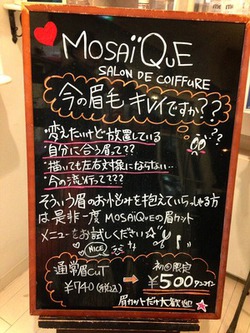 MOSAÏQUE
SALON DE COIFFURE
今の眉毛 キレイですか??
??
・変えたいけど放置している
・自分に合う眉って??
・描いても左右対象にならない…
・今の流行って???
そういう眉のお悩みを抱えていらっしゃる方
は是非一度MOSAÏQUEの眉カット
メニューをお試しください☆
NICE
通常眉CUT
¥740(税込)
初回限定
¥500ワンコイン
眉カットだけ大歓迎!!